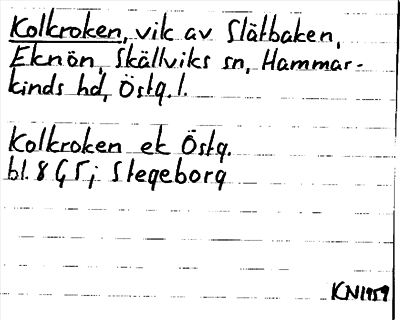 Kolkroken, vik av Slätbaken,
Eknön, Skällviks sn, Hammar-
kinds hd, Östg. l.
Kolkroken ek Östg.
bl. 8 G 5 j Stegeborg
KN1959